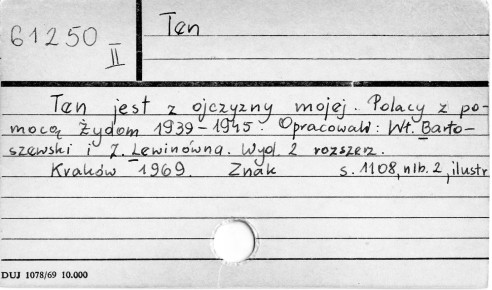 61250
II
Ten
Ten jest z ojczyzny mojej. Polacy z po-
mocą Żydom 1939-1945. Opracowali: Wł. Barto-
szewski i Z. Lewinówna. Wyd. 2 rozszerz.
Kraków 1969. Znak s. 1108, nlb. 2, ilustr
DUJ 1078/69 10.000